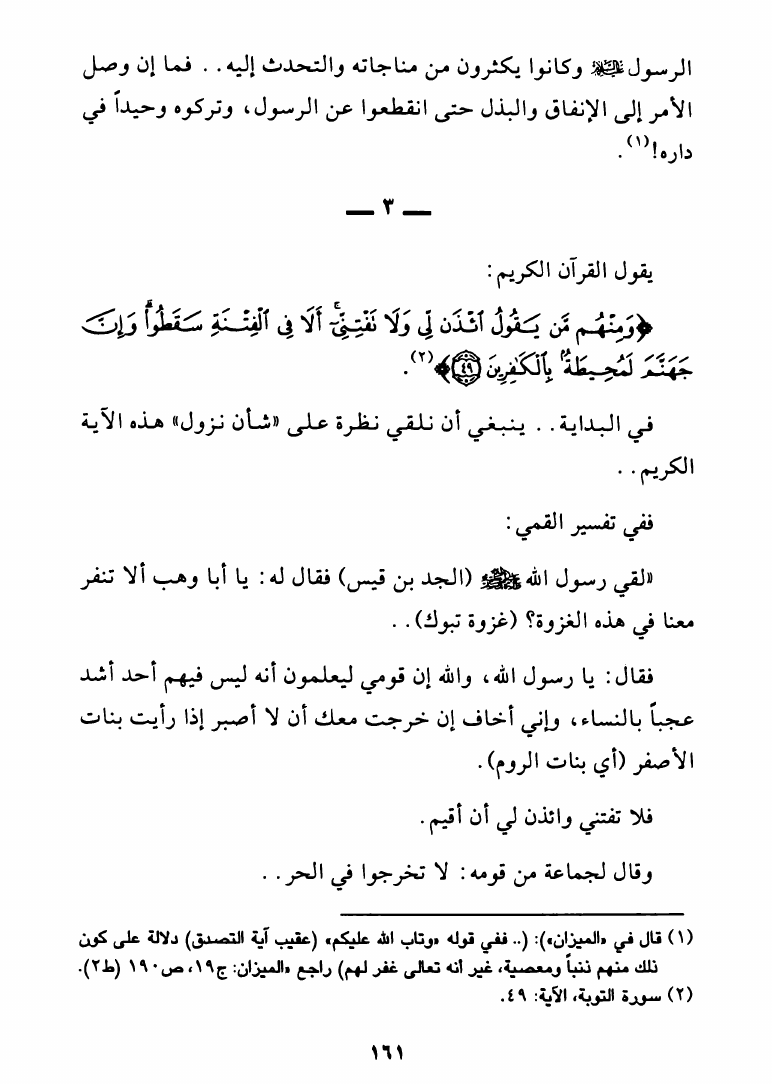 الرسول ﷺ وكانوا يكثرون من مناجاته والتحدث إليه . . فما إن وصل
الأمر إلى الإنفاق والبذل حتى انقطعوا عن الرسول، وتركوه وحيداً في
داره!(١) .
— ٣ —
يقول القرآن الكريم:
﴿وَمِنْهُم مَّن يَقُولُ ٱئْذَن لِّي وَلَا نَفْتِنِّيٓ ۚ أَلَا فِي ٱلْفِتْنَةِ سَقَطُوا۟ ۗ وَإِنَّ
جَهَنَّمَ لَمُحِيطَةٌۢ بِٱلْكَٰفِرِينَ ٤٩﴾(٢).
في البداية . . ينبغي أن نلقي نظرة على «شأن نزول» هذه الآية
الكريم . .
ففي تفسير القمي:
«لقي رسول الله ﷺ (الجد بن قيس) فقال له: يا أبا وهب ألا تنفر
معنا في هذه الغزوة؟ (غزوة تبوك) . .
فقال: يا رسول الله، والله إن قومي ليعلمون أنه ليس فيهم أحد أشد
عجباً بالنساء، وإني أخاف إن خرجت معك أن لا أصبر إذا رأيت بنات
الأصفر (أي بنات الروم).
فلا تفتني وائذن لي أن أقيم.
وقال لجماعة من قومه: لا تخرجوا في الحر . .
(١) قال في «الميزان»): (.. ففي قوله «وتاب الله عليكم» (عقيب آية التصدق) دلالة على كون
ذلك منهم ذنباً ومعصية، غير أنه تعالى غفر لهم) راجع «الميزان: ج١٩، ص١٩٠ (ط٢).
(٢) سورة التوبة، الآية: ٤٩.
١٦١